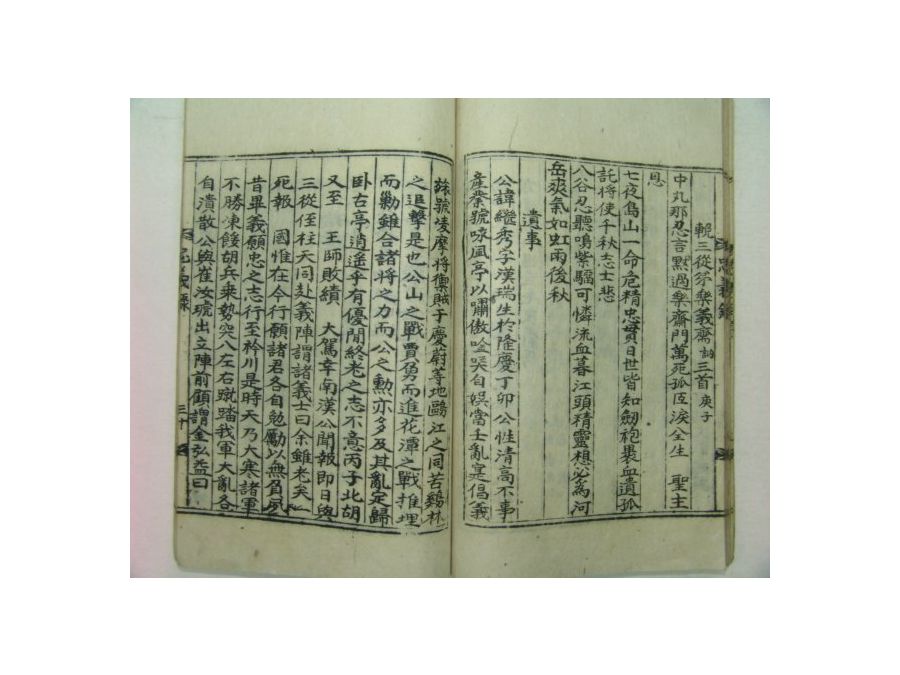 輓三從仲樂義齋 三首 庚子
中丸那忍言默過樂齋門萬死孤臣淚全生 聖主
恩
七夜島山一命危精忠貫日世皆知劒袍裹血遺孤
託將使千秋志士悲
八谷忍聽鳴紫騮可憐流血暮江頭精靈想必爲河
岳爽氣如虹雨後秋
遺事
公諱繼秀字漢瑞生於隆慶丁卯公性清高不事
産業號咏風亭以嘯傲唫哭自娱當壬亂寔倡義
旅號凌摩將禦賊于慶蔚等地鷗江之同苦鷄林
之追擊是也公山之戰賈勇而進花潭之戰推埋
而勦雖合諸將之力而公之勲亦多及其亂定歸
卧古亭逍遥乎有優閒終老之志不意丙子北胡
又至 王師敗績 大駕幸南漢公聞報即日與
三從侄柱天同赴義陣謂諸義士曰余雖老矣一
死報 國惟在今行願諸君各自勉勵以無負夙
昔畢義願忠之志行至衿川是時天乃大寒諸軍
不勝凍餒胡兵乘勢突入左右蹴踏我軍大亂各
自潰散公與崔汝琥出立陣前顧謂金弘益曰
忠義錄
三十